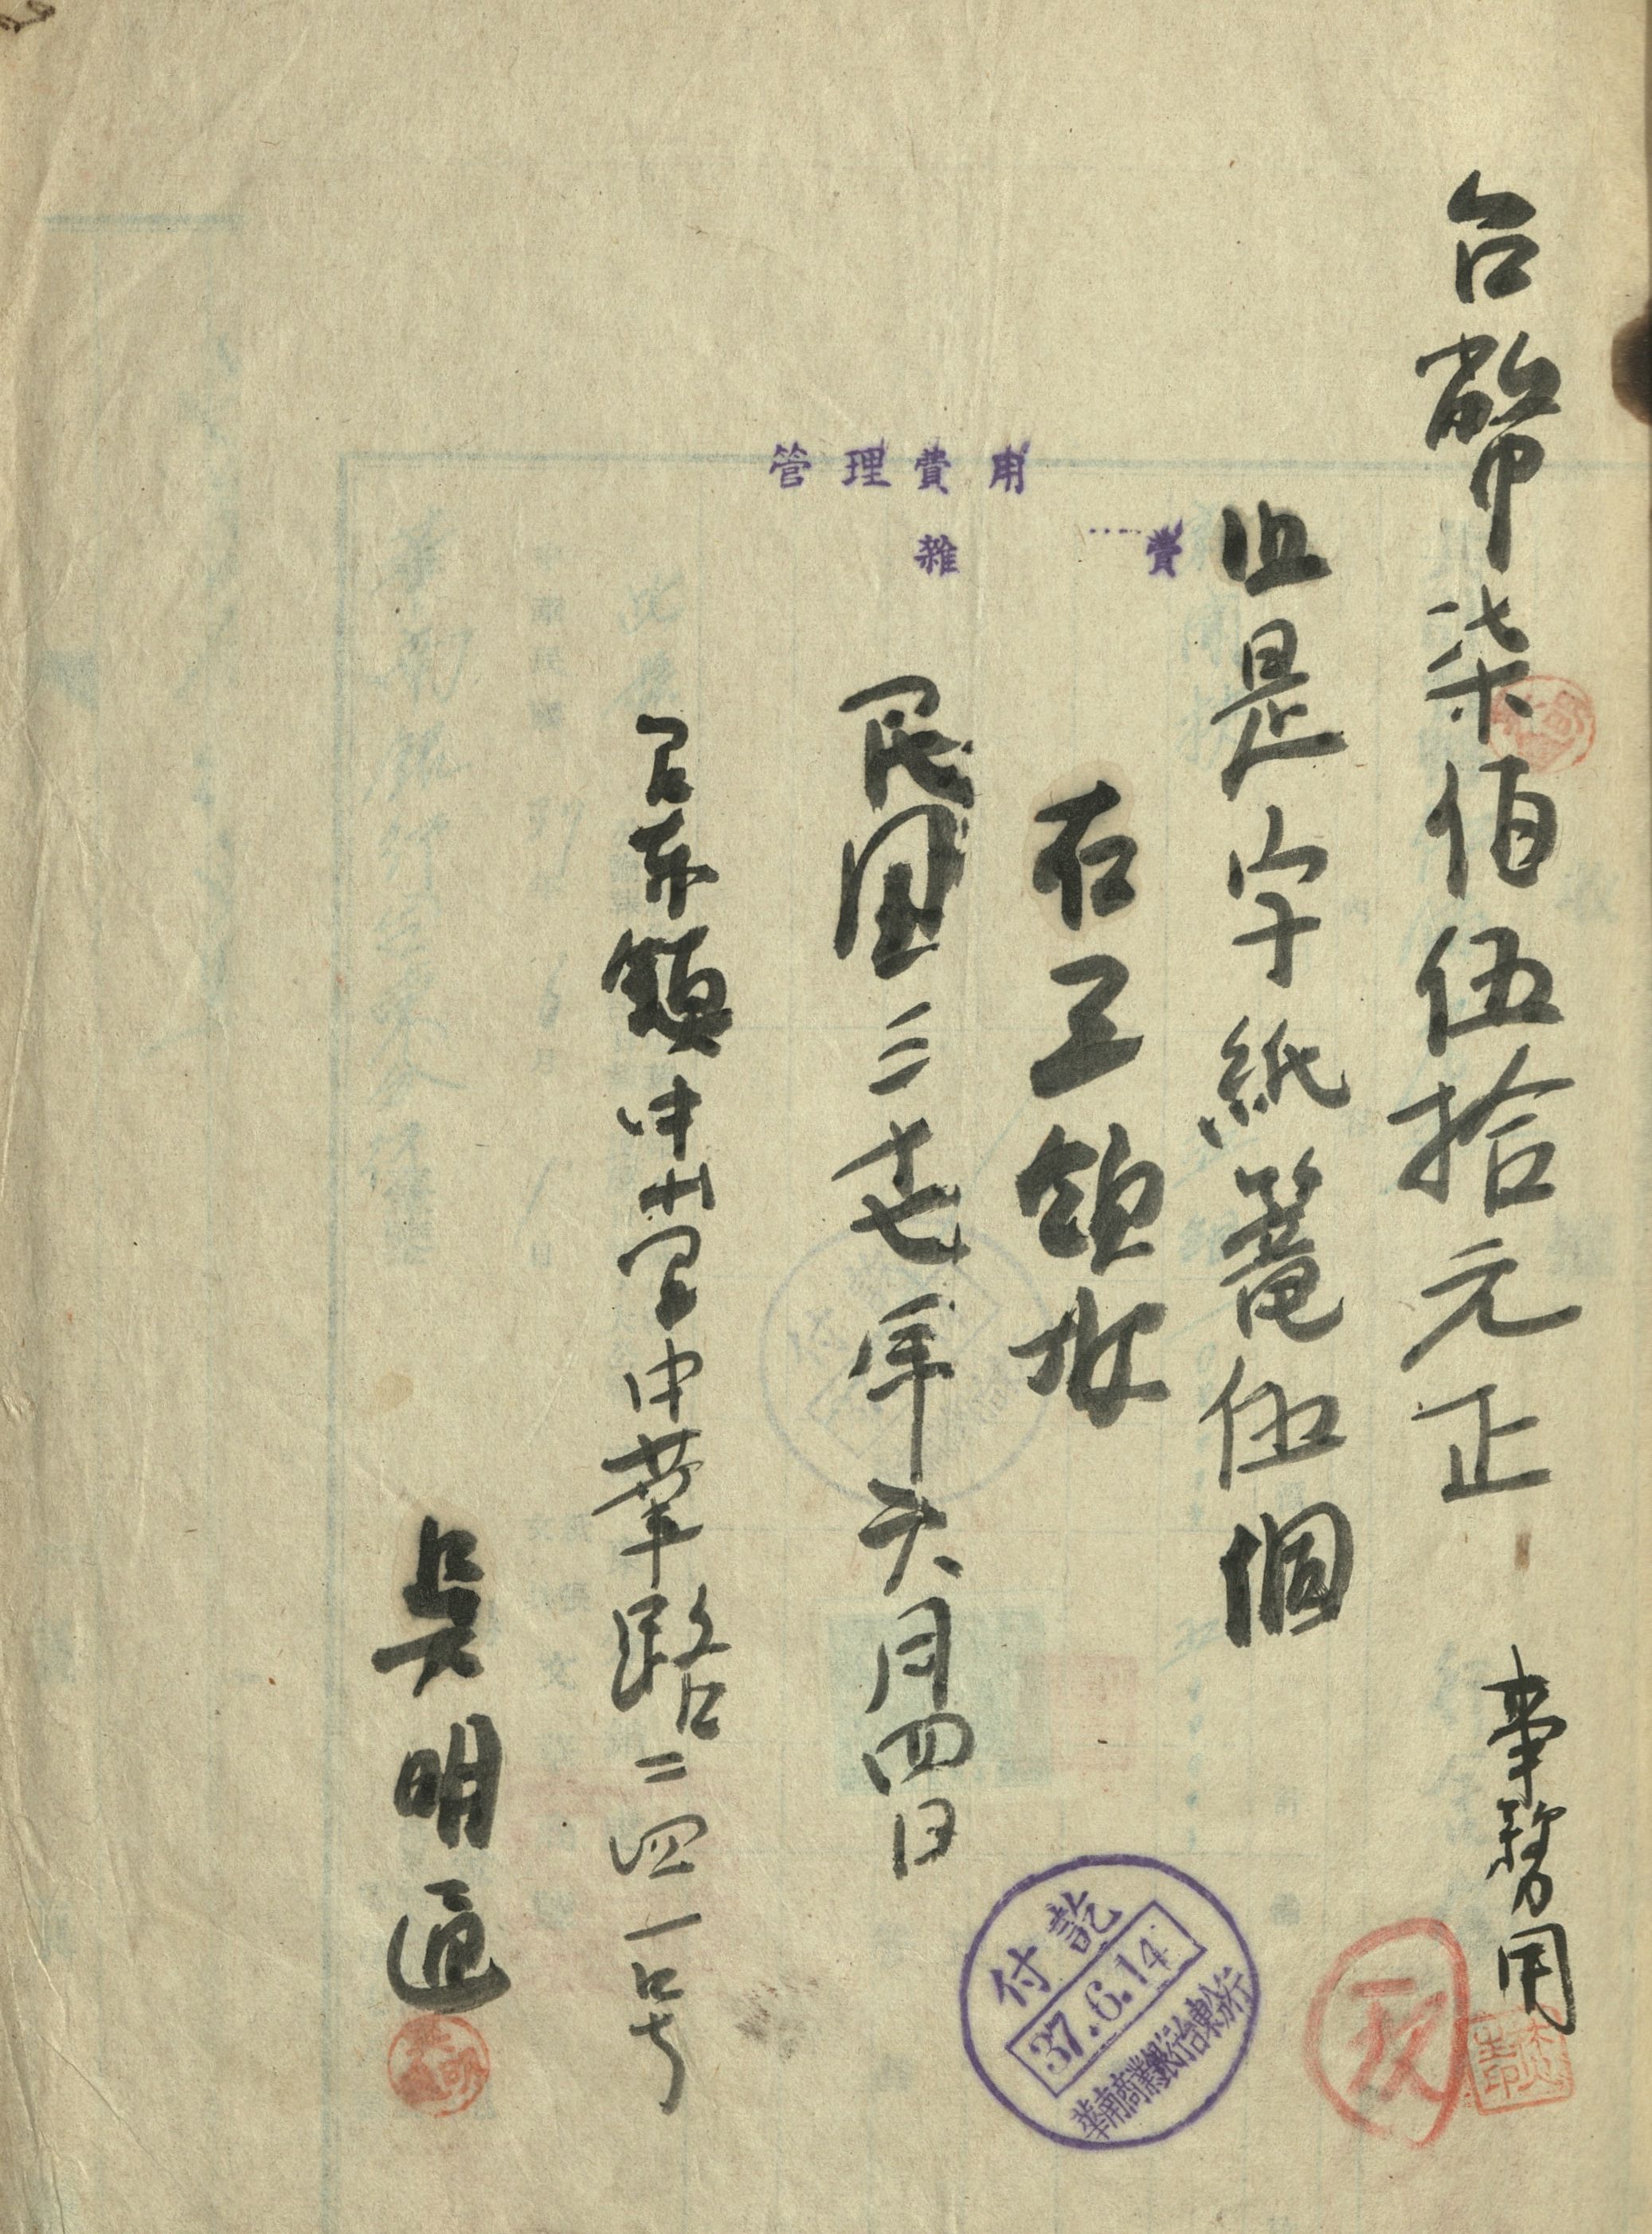 台幣柒佰伍拾元正
事務用
但是字紙篭伍個
右正領收
民国三十七年六月四日
台東鎮中山里中華路二四一号
吳明通
管理費用
雜費
付訖
37.6.14
華南商業銀行台東分行